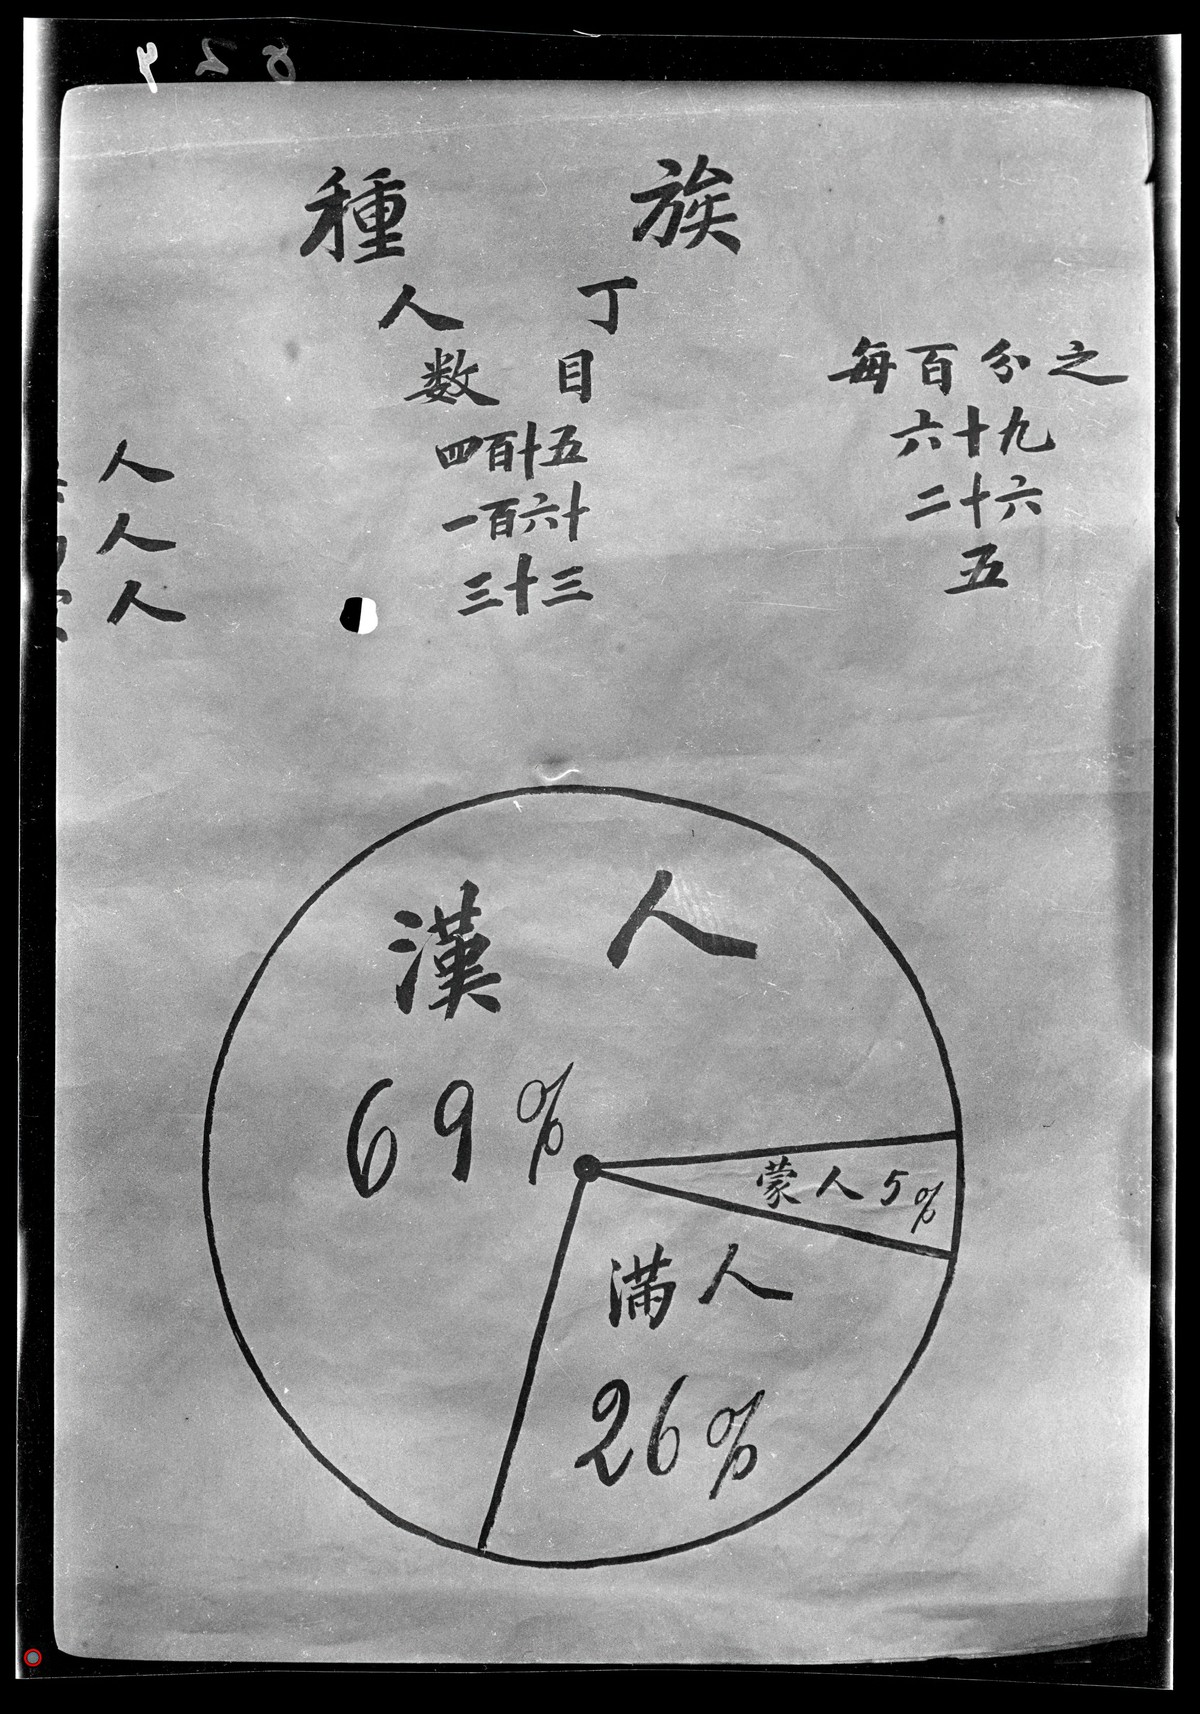 種族
人丁
数目 每百分之
人 四百十五 六十九
人 一百六十 二十六
人 三十三 五
漢人
69%
蒙人5%
満人
26%